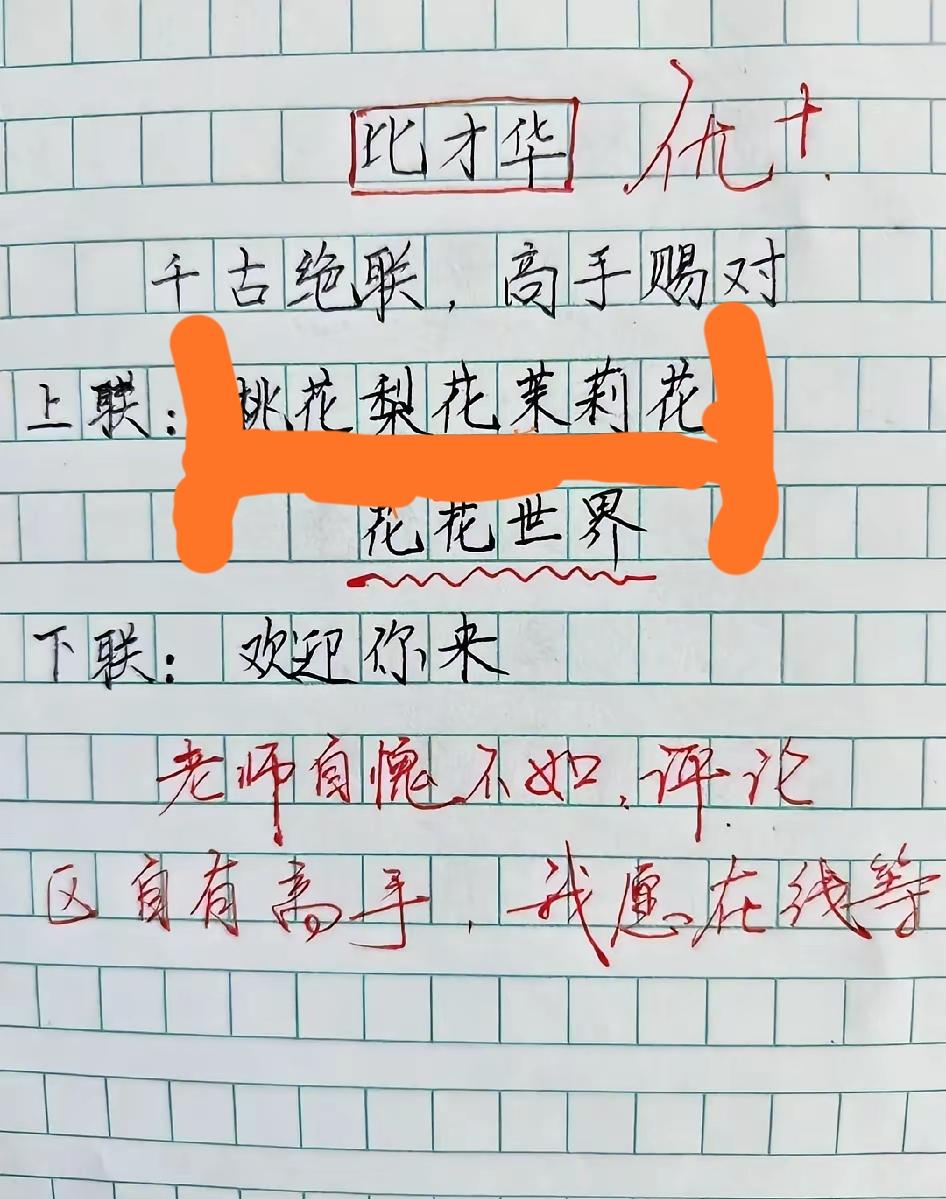 比才华 优+
千古绝联，高手赐对
上联：桃花梨花茉莉花
花花世界
下联：欢迎你来
老师自愧不如，评论
区自有高手，我愿在线等